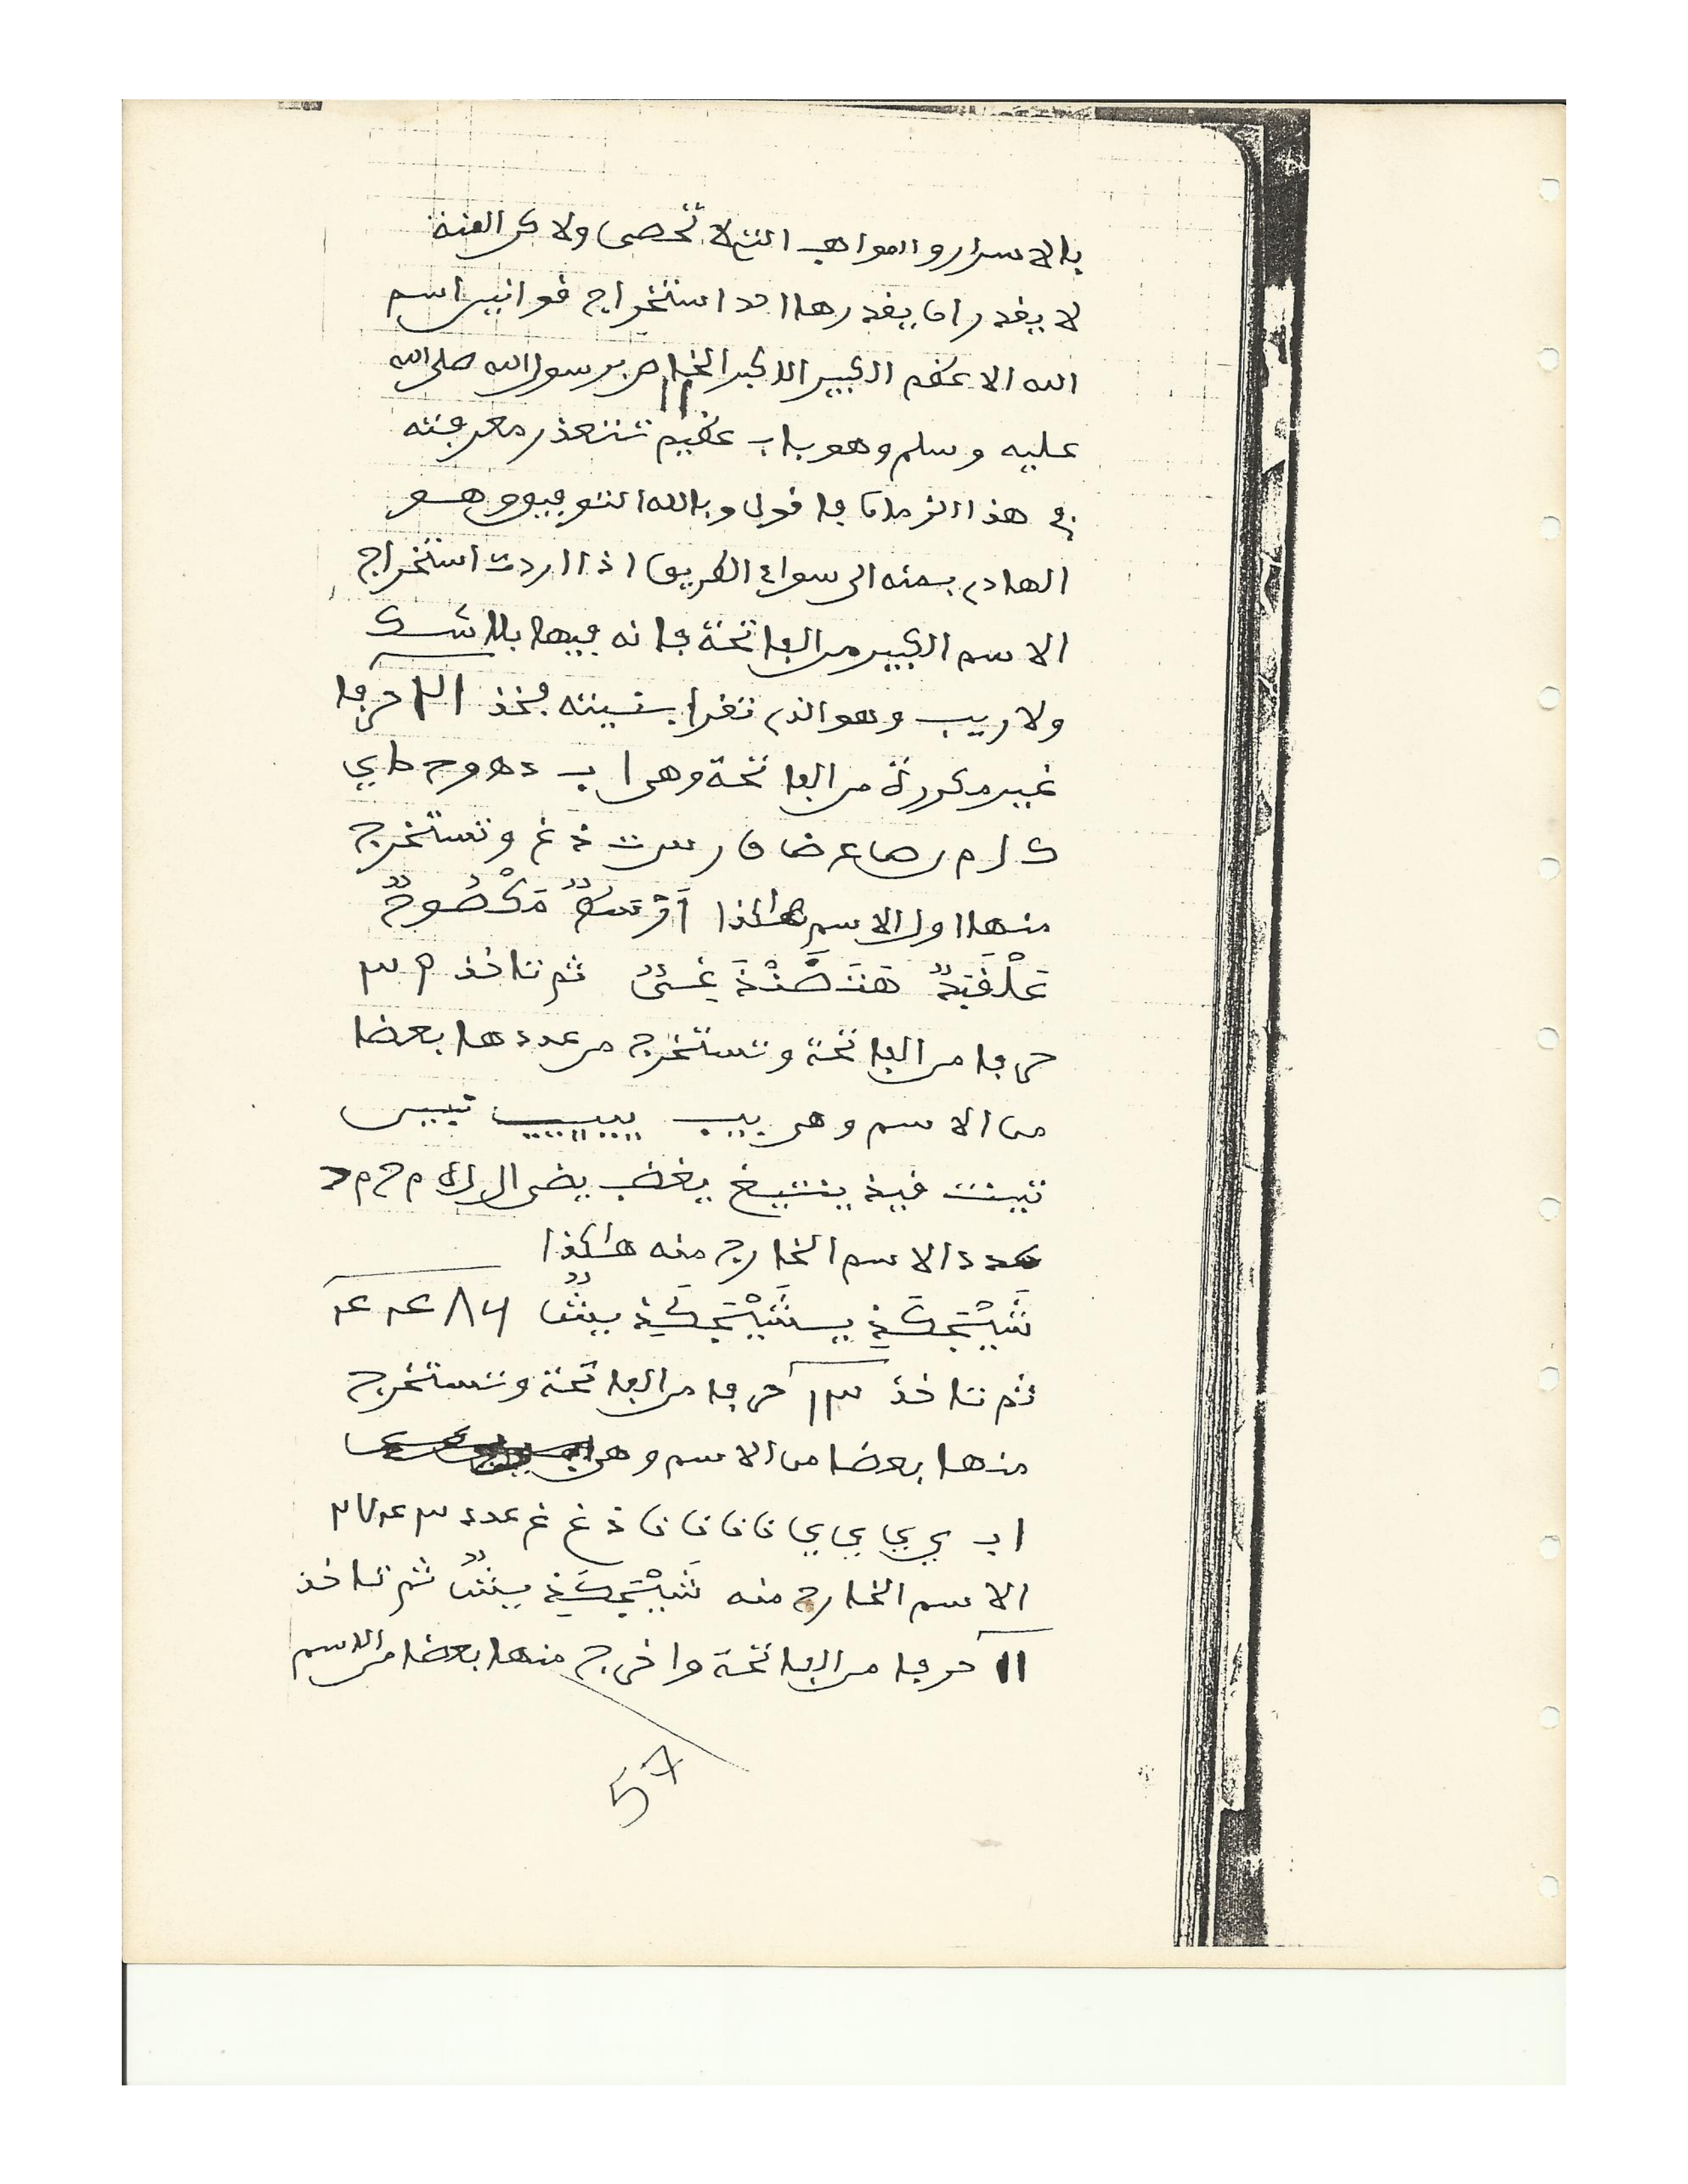 بالاسرار والمواهب التي لا تحصى ولاكن الفنة
لا يقدر ان يقدرها احد استخراج قوانين اسم
الله الاعظم الكبير الاكبر الخاص برسول الله صلى الله
عليه وسلم وهو باب عظيم تتعذر معرفته
في هذا الزمان فاقول وبالله التوفيق وهو
الهادي بمنه الى سواء الطريق اذا اردت استخراج
الاسم الكبير من الفاتحة فانه فيها بلا شك
ولا ريب وهو الذي تقرا بنيته فخذ ٢١ حرفا
غير مكررة من الفاتحة وهي ا ب د ه و ح ط ي
ك ل م ن ص ع ض ق ر س ت ذ غ وتستخرج
منها اول الاسم هاكذا
ثم تاخذ
حرفا من الفاتحة وتستخرج من عددها بعضا
من الاسم وهي
عدد الاسم الخارج منه هاكذا
ثم تاخذ ١٣ حرفا من الفاتحة وتستخرج
منها بعضا من الاسم وهي
ا ب ي ي ي ي ن ن ن ن ذ غ غ عدد
الاسم الخارج منه ثم تاخذ
١١ حرفا من الفاتحة واخرج منها بعضا من الاسم
57